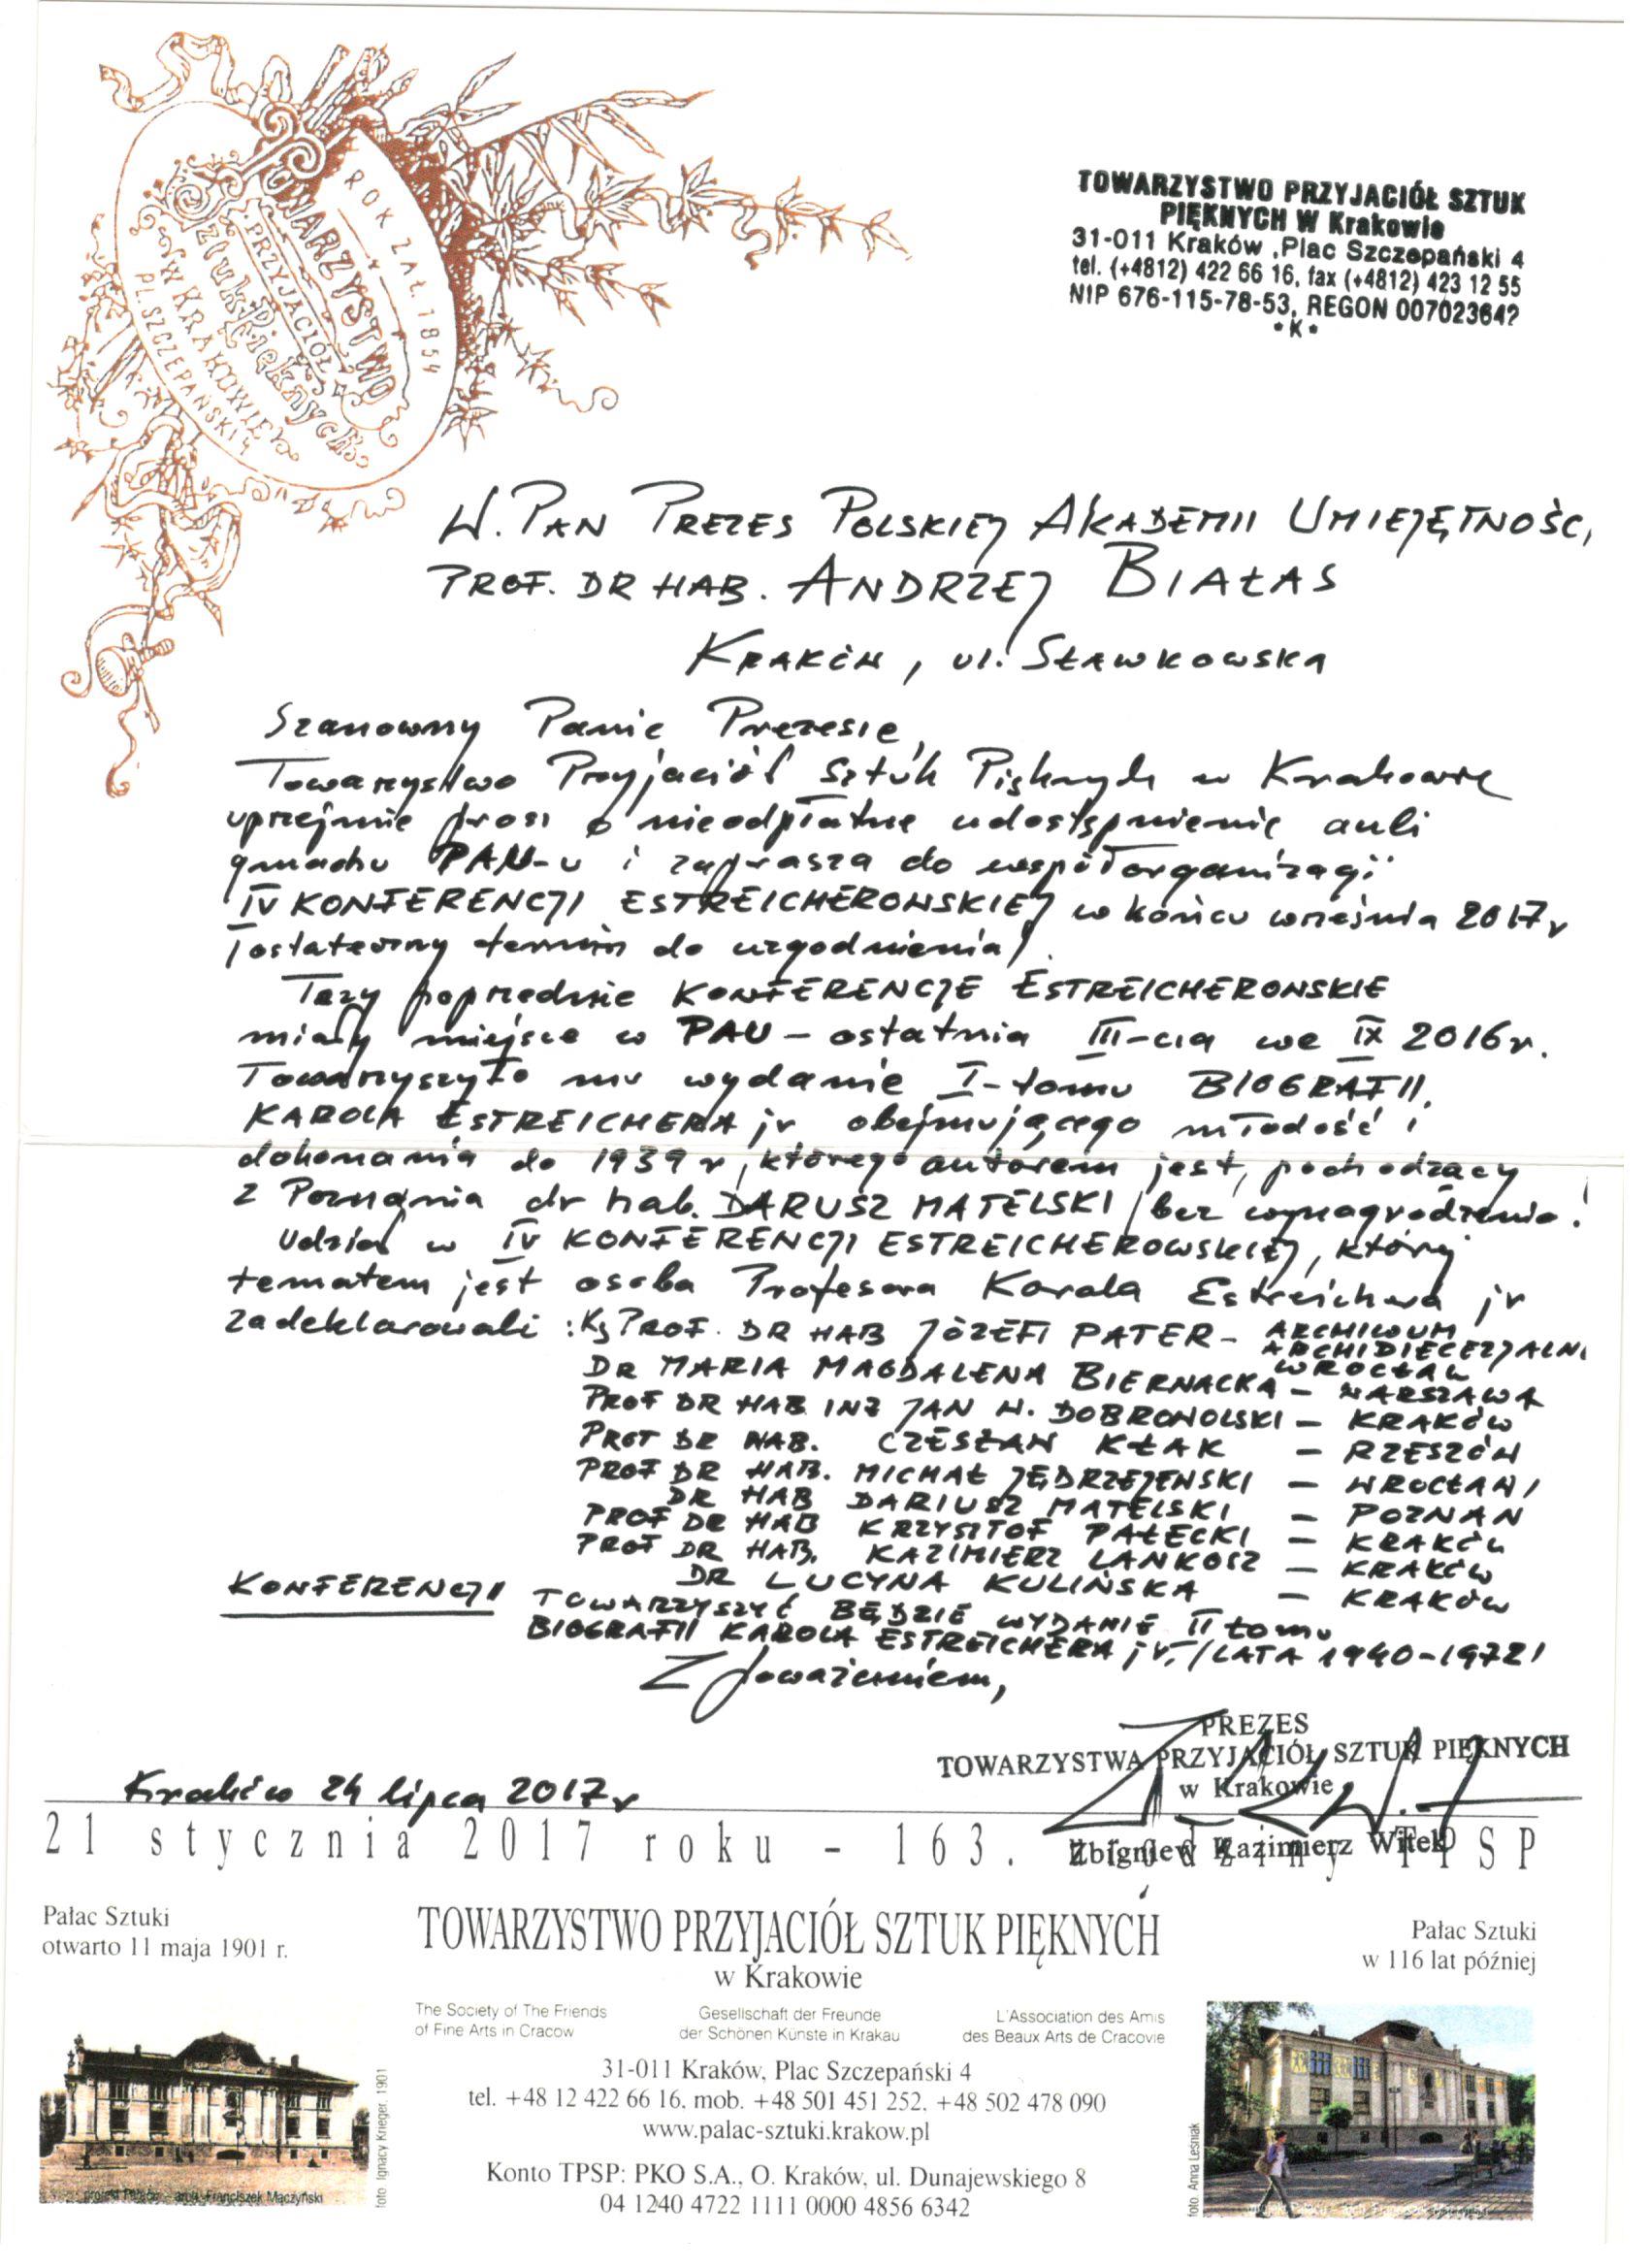 ROK ZAŁ. 1854
TOWARZYSTWO
PRZYJACIÓŁ
Sztuk Pięknych
W KRAKOWIE
PL. SZCZEPAŃSKI 4
TOWARZYSTWO PRZYJACIÓŁ SZTUK
PIĘKNYCH W Krakowie
31-011 Kraków ,Plac Szczepański 4
tel. (+4812) 422 66 16, fax (+4812) 423 12 55
NIP 676-115-78-53, REGON 007023642
*K*
W. PAN PREZES POLSKIEJ AKADEMII UMIEJĘTNOŚCI
PROF. DR HAB. ANDRZEJ BIAŁAS
KRAKÓW, ul. SŁAWKOWSKA
Szanowny Panie Prezesie,
Towarzystwo Przyjaciół Sztuk Pięknych w Krakowie
uprzejmie prosi o nieodpłatne udostępnienie auli
gmachu PAU-u i zaprasza do współorganizacji
IV KONFERENCJI ESTREICHEROWSKIEJ w końcu września 2017 r
/ostateczny termin do uzgodnienia/.
Trzy poprzednie KONFERENCJE ESTREICHEROWSKIE
miały miejsce w PAU – ostatnia III-cia we IX 2016 r.
Towarzyszyło mu wydanie I-tomu BIOGRAFII
KAROLA ESTREICHERA jr obejmującego młodość i
dokonania do 1939 r, którego autorem jest, pochodzący
z Poznania dr hab. DARUSZ MATELSKI /bez wynagrodzenia!
Udział w IV KONFERENCJI ESTREICHEROWSKIEJ, której
tematem jest osoba Profesora Karola Estreichera jr
zadeklarowali : Ks PROF. DR HAB JÓZEF PATER – ARCHIWUM
ARCHIDIECEZJALNE
WROCŁAW
DR MARIA MAGDALENA BIERNACKA – WARSZAWA
PROF DR HAB INŻ JAN W. DOBROWOLSKI – KRAKÓW
PROF DR HAB. CZESŁAW KŁAK – RZESZÓW
PROF DR HAB. MICHAŁ JĘDRZEJEWSKI – WROCŁAW
DR HAB DARIUSZ MATELSKI – POZNAŃ
PROF DR HAB KRZYSZTOF PAŁECKI – KRAKÓW
PROF DR HAB. KAZIMIERZ LANKOSZ – KRAKÓW
DR LUCYNA KULIŃSKA – KRAKÓW
KONFERENCJI TOWARZYSZYĆ BĘDZIE WYDANIE II tomu
BIOGRAFII KAROLA ESTREICHERA jr. /LATA 1940-1972/
Z poważaniem,
PREZES
TOWARZYSTWA PRZYJACIÓŁ SZTUK PIĘKNYCH
w Krakowie
Zbigniew Kazimierz Witek
Kraków 24 lipca 2017 r
21 stycznia 2017 roku - 163. urodziny TPSP
Pałac Sztuki
otwarto 11 maja 1901 r.
TOWARZYSTWO PRZYJACIÓŁ SZTUK PIĘKNYCH
w Krakowie
Pałac Sztuki
w 116 lat później
The Society of The Friends
of Fine Arts in Cracow
Gesellschaft der Freunde
der Schönen Künste in Krakau
L'Association des Amis
des Beaux Arts de Cracovie
31-011 Kraków, Plac Szczepański 4
tel. +48 12 422 66 16. mob. +48 501 451 252. +48 502 478 090
www.palac-sztuki.krakow.pl
Konto TPSP: PKO S.A., O. Kraków, ul. Dunajewskiego 8
04 1240 4722 1111 0000 4856 6342
projekt Pałacu – arch. Franciszek Mączyński
foto Ignacy Krieger, 1901
foto. Anna Leśniak